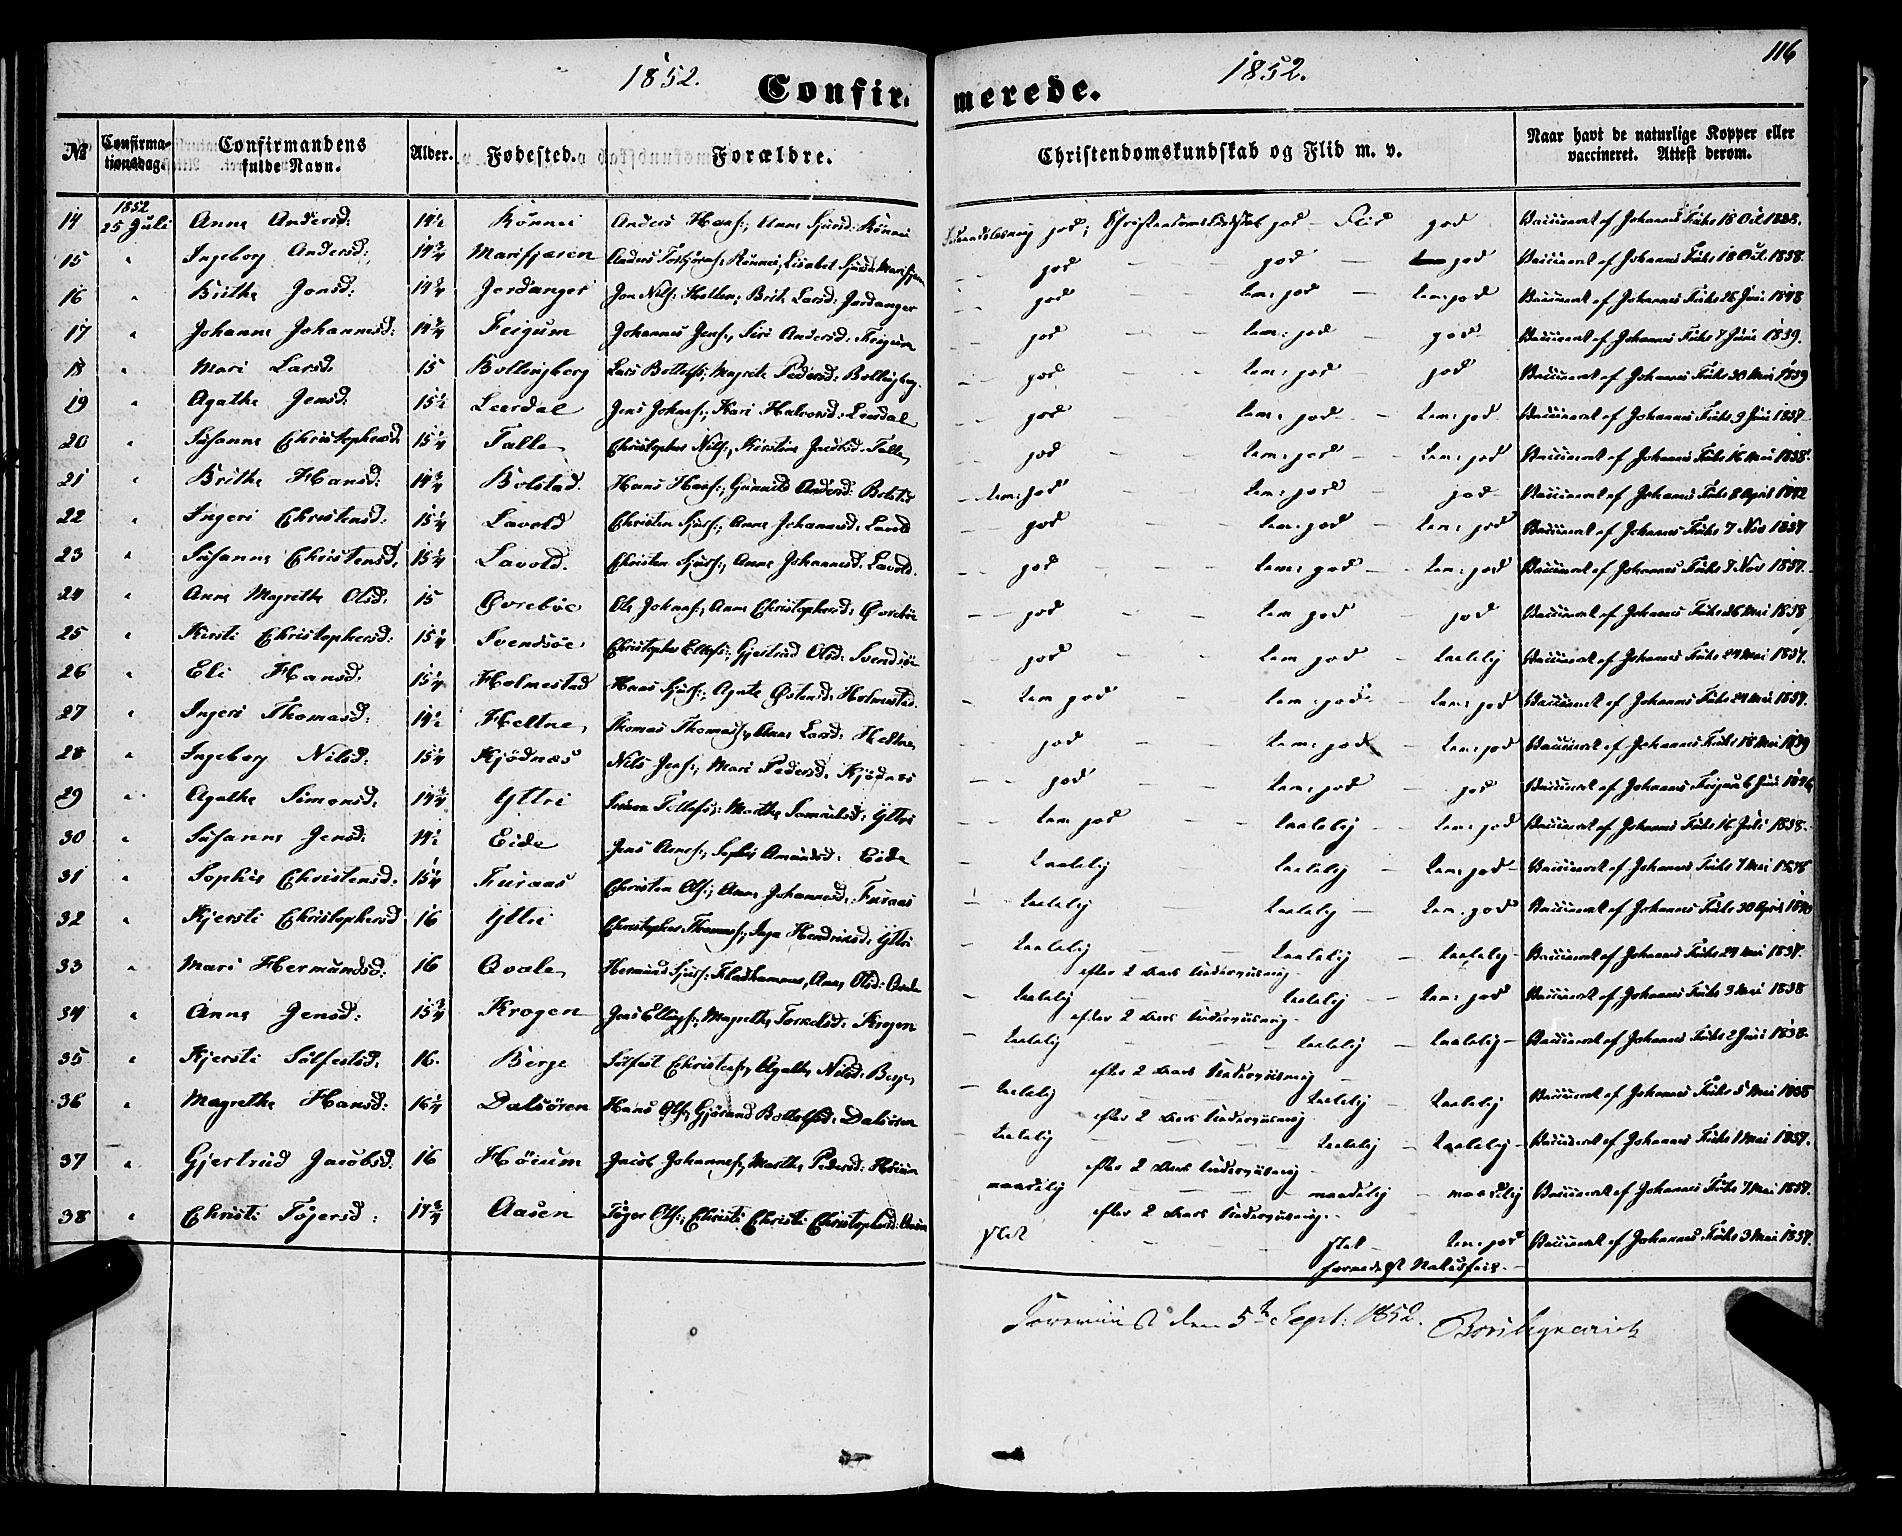 1852. Confirmerede. 1852. 116
No Confirmationsdag. Confirmandens fulde Navn. Alder. Fødested. Forældre. Christendomskundskab og Flid m. v. Naar havt de naturlige Kopper eller vaccineret. Attest derom.
1852
14 25 Juli Anne Andersd: 14½ Rönnei Anders Hansf:, Anne Sjursd: Rönnei god; Christendomskundskab god - Flid god Vaccineret af Johannes Fuhr 18 Oct 1838.
15 " Ingeborg Andersd: 14¾ Marifjæren Anders Rönnei, Lisabet Sjursd: Marifjæren god god god Vaccineret af Johannes Fuhr 18 Oct. 1838.
16 " Brithe Jonsd: 14¾ Jordanger Jon Nilsf: Brite Larsd: Jordanger god tem: god tem: god Vaccineret af Johannes Fuhr 26 Juni 1848
17 " Johanne Johannesd: 14¾ Feigum Johannes Jensf:, Siri Andersd: Feigum god tem: god god Vaccineret af Johannes Fuhr 7 Juni 1839.
18 " Mari Larsd: 15 Bollingberg Lars Botolfs; Magrete Pedersd: Bollingberg god tem: god god Vaccineret af Johannes Fuhr 30 Mai 1839
19 " Agathe Jensd: 15½ Leerdal Jens Johnsf:, Kari Halvorsd: Leerdal god tem: god - tem: god Vaccineret af Johannes Fuhr 9 Juni 1837
20 " Susanne Christophersd: 15¼ Talle Christopher Nilsf:, Kirstine Jacobsd: Talle god tem: god - tem: god Vaccineret af Johannes Fuhr 16 Mai 1838.
21 " Brithe Hansd: 14¾ Bolstad. Hans Hansf:, Gunnild Andersd: Bolstad tem: god tem: god god Vaccineret af Johannes Fuhr 8 April 1842
22 " Ingeri Christensd: 15¼ Lavold Christen Sjursf:, Anne Johannesd: Lavold god tem: god - tem: god Vaccineret af Johannes Fuhr 7 Nov 1837
23 " Susanne Christensd: 15¼ Lavold. Christen Sjursf:, Anne Johannesd: Lavold. god tem: god - tem: god Vaccineret af Johannes Fuhr 7 Nov 1837.
24 " Anne Magrethe Olsd: 15 Øvrebøe Ole Johnsf:, Anne Christophersd: Øvrebøe god tem god god Vaccineret af Johannes Fuhr 26 Mai 1838
25 " Kirsti Christophersd: 15¼ Svendsøe Christopher Ellefs:, Gjertrud Olsd: Svendsøe god tem god - taalelig Vaccineret af Johannes Fuhr 24 Mai 1837.
26 " Eli Hansd: 15¼ Holmestad Hans Sjursf:, Agate Østensd: Holmestad. tem god tem: god - tem: god Vaccineret af Johannes Fuhr 24 Mai 1837.
27 " Ingeri Thomasd: 14½ Heltne, Thomas Thomasf:, Anne Larsd: Heltne, god tem: god - tem: god Vaccineret af Johannes Fuhr 18 Mai 1839
28 " Ingeborg Nilsd: 15¼ Kjödnæs Nils Jensf:, Mari Pedersd: Kjödnæs god tem: god god Vaccineret af Johannes Feigum 6 Juni 1846
29 " Agathe Simonsd: 14¾ Yttri Simon Tollefs:, Marthe Samuelsd: Yttri tem god taalelig tem: god Vaccineret af Johannes Fuhr 16 Juli 1838.
30 " Susanne Jensd: 14½ Eide Jens Arnesf:, Sophie Amundsd: Eide taalelig taalelig - tem: god Vaccineret af Johannes Fuhr 7 Mai 1838
31 " Sophie Christensd: 15¼ Furaas Christen Olsf:, Anne Johannesd: Furaas taalelig taalelig - tem: god Vaccineret af Johannes Fuhr 30 April 1840
32 " Kjersti Christophersd 16 Yttri Christopher Thomasf:, Inga Hendriksd: Yttri taalelig taalelig - taalelig - Vaccineret af Johannes Fuhr 24 Mai 1837.
33 " Mari Hermundsd: 16 Qvale, Hermund Sjursf: Fladhammer, Anne Olsd: Qvale efter 2 Aars Underviisning. taalelig taalelig - tem: god Vaccineret af Johannes Fuhr 3 Mai 1838
34 " Anne Jensd: 15¾ Krogen Jens Ellingsf:, Magrethe Torkelsd: Krogen efter 2 Aars Underviisning. taalelig taalelig - taalelig - Vaccineret af Johannes Fuhr 2 Juni 1838.
35 " Kjersti Sølfestsd: 16. Berge Sølfest Christensf:, Agathe Nilsd: Berge efter 2 Aars Underviisning taalelig taalelig - taalelig Vaccineret af Johannes Fuhr 5 Mai 1838
36 " Magrethe Hansd: 16¼ Dalsören Hans Olsf:, Gjørand Botolfsd: Dalsören efter 2 Aars Underviisning taalelig taalelig - taalelig - Vaccineret af Johannes Fuhr 1 Mai 1837.
37 " Gjertrud Jacobsd: 16 Høium Jacob Johannesf:, Marthe Pedersd: Høium efter 2 Aars Underviisning maadelig - maadelig - maadelig Vaccineret af Johannes Fuhr 7 Mai 1837.
38 " Christi Töjersd: 17¾ Aasen Töger Olsf:, Christi Christi Christophersd: Aasen efter 2 Aars Underviisning. slet slet - tem: god Vaccineret af Johannes Fuhr 3 Mai 1837.
den 5te Sept: 1852.